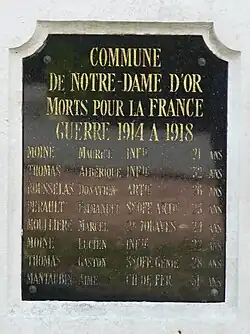 COMMUNE
DE NOTRE-DAME D'OR
MORTS POUR LA FRANCE
GUERRE 1914 A 1918
MOINE MAURICE INFIE 21 ANS
THOMAS ALBERIQUE INFIE 32 ANS
ROUSSELAS DONATIEN ARTIE 26 ANS
PERAULT EMMANUEL S/OFF 25 ANS
MOULIERE MARCEL ZOUAVES 21 ANS
MOINE LUCIEN INFIE 22 ANS
THOMAS GASTON S/OFF GENIE 28 ANS
MANTAUBIN AIMÉ CH DE FER 31 ANS